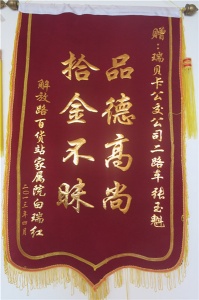 赠：瑞贝卡公交公司二路车 张玉魁
品德高尚
拾金不昧
解放路百货站家属院白瑞红
二〇一三年四月